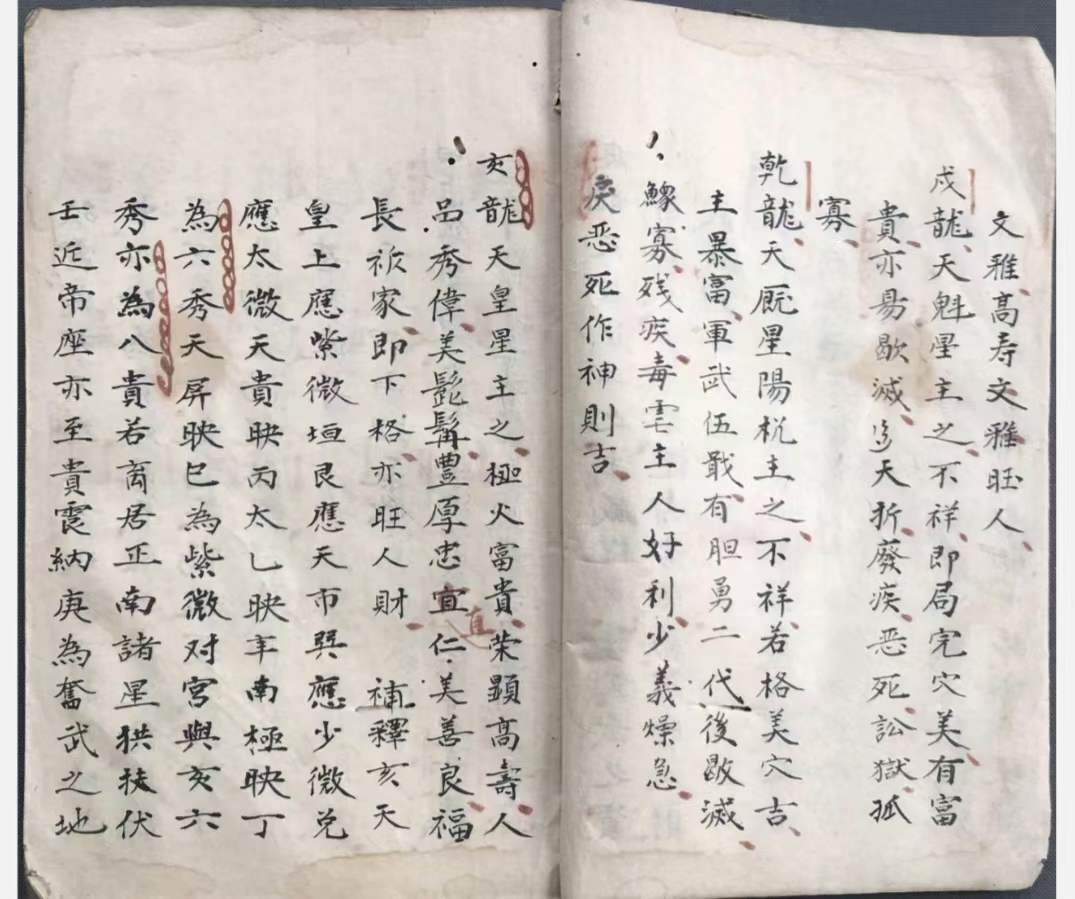 文雅高寿文雅旺人
戍龍天魁星主之不祥即局完穴美有富
貴亦易歇滅多夭折廢疾恶死訟獄孤
寡
乾龍天厩星陽枕主之不祥若格美穴吉
主暴富軍武伍戢有胆勇二代後歇滅
鰥寡残疾毒主人好利少義燥急
戾恶死作神則吉
亥龍天皇星主之極火富貴荣顯高壽人
品秀偉美髭髯豐厚忠宜直仁美善良福
長祚家即下格亦旺人財 補釋亥天
皇上應紫微垣艮應天市巽應少微兑
應太微天貴映丙太乙映辛南極映丁
為六秀天屏映巳為紫微对宮與亥六
秀亦為八貴若离居正南諸星拱扶伏
壬近帝座亦至貴震納庚為奮武之地